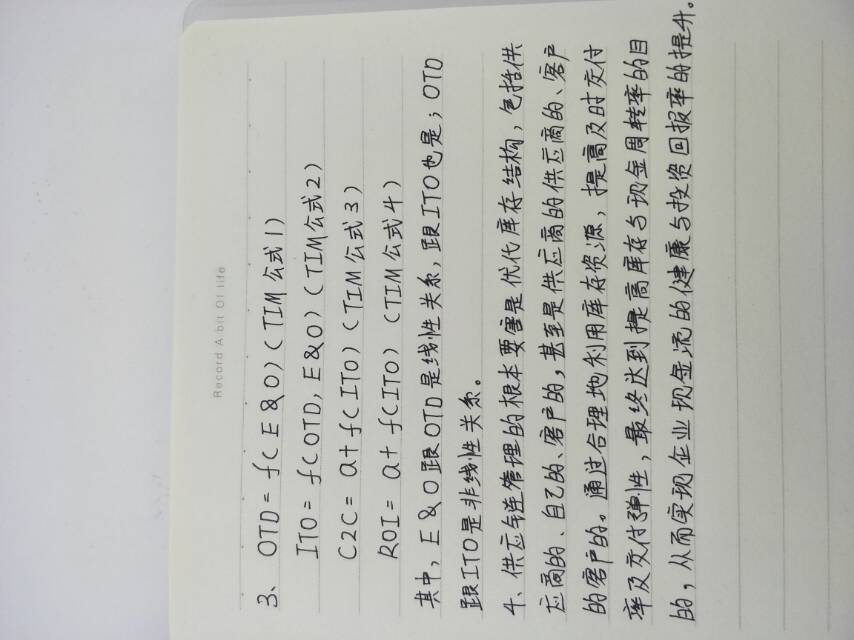 Record A bit Of life
3、OTD = f(E&O)(TIM公式1)
ITO = f(OTD, E&O)(TIM公式2)
C2C = a+ f(ITO)(TIM公式3)
ROI = a+ f(ITO) (TIM公式4)
其中, E&O跟OTD是线性关系, 跟ITO也是; OTD
跟ITO是非线性关系。
4、供应链管理的根本要害是优化库存结构, 包括供
应商的、自己的、客户的, 甚至是供应商的供应商的、客户
的客户的。通过合理地利用库存资源, 提高及时交付
率及交付弹性, 最终达到提高库存与现金周转率的目
的, 从而实现企业现金流的健康与投资回报率的提升。